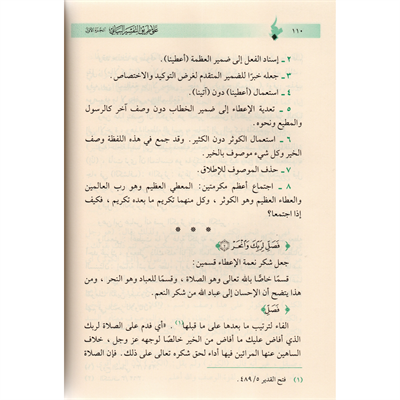 ١١٠ على طريق التفسير البياني الجزء الأول
٢ ـ إسناد الفعل إلى ضمير العظمة (أعطينا).
٣ ـ جعله خبرًا للضمير المتقدم لغرض التوكيد والاختصاص.
٤ ـ استعمال (أعطينا) دون (آتينا).
٥ ـ تعدية الإعطاء إلى ضمير الخطاب دون وصف آخر كالرسول
والمطيع ونحوه.
٦ ـ استعمال الكوثر دون الكثير. وقد جمع في هذه اللفظة وصف
الخير وكل شيء موصوف بالخير.
٧ ـ حذف الموصوف للإطلاق.
٨ ـ اجتماع أعظم مكرمتين: المعطي العظيم وهو رب العالمين
والعطاء العظيم وهو الكوثر ، وكل منهما تكريم ما بعده تكريم ، فكيف
إذا اجتمعا؟
* * *
﴿ فَصَلِّ لِرَبِّكَ وَٱنْحَرْ ﴾
جعل شكر نعمة الإعطاء قسمين:
قسمًا خاصًّا بالله تعالى وهو الصلاة ، وقسمًا للعباد وهو النحر ، ومن
هذا يتضح أن الإحسان إلى عباد الله من شكر النعم.
﴿ فَصَلِّ ﴾
الفاء لترتيب ما بعدها على ما قبلها(١) ، «أي فدم على الصلاة لربك
الذي أفاض عليك ما أفاض من الخير خالصًا لوجهه عز وجل ، خلاف
الساهين عنها المرائين فيها أداء لحق شكره تعالى على ذلك. فإن الصلاة
(١) فتح القدير ٥/ ٤٨٩.